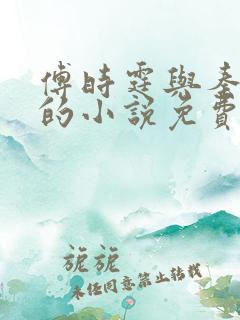 傅時霆與秦
的小說免費
旎旎
未经同意禁止转载